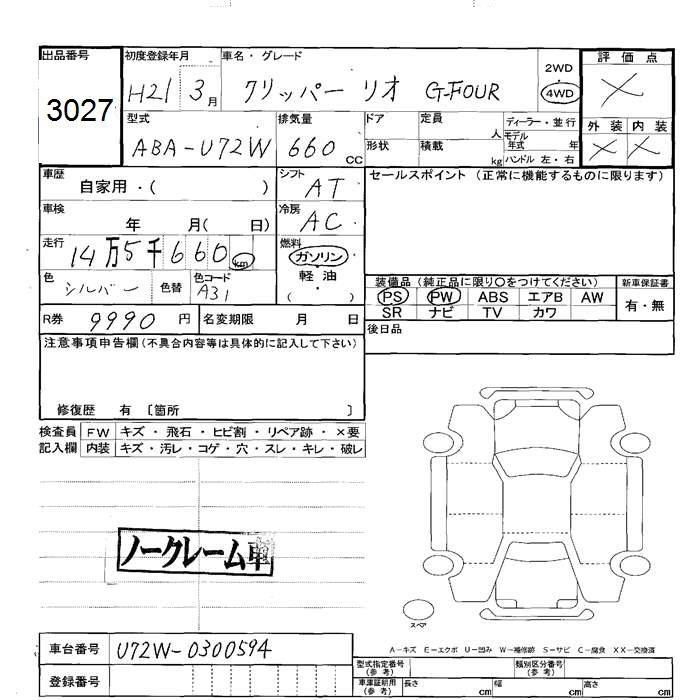 出品番号 初度登録年月 車名・グレード 2WD 評価点
3027 H21 3月 クリッパー リオ G-FOUR ・ 4WD ×
型式 排気量 ドア 定員 人 ディーラー・並行 外装 内装
ABA-U72W 660 CC 形状 積載 kg モデル年式 年 ハンドル 左・右 × ×
車歴 自家用・( ) シフト AT セールスポイント (正常に機能するものに限ります)
車検 年 月( 日) 冷房 AC
走行 14万5千660km 燃料 ガソリン・軽油・( )
色 シルバー 色替 色コード A31
装備品 (純正品に限り○をつけてください) 新車保証書
PS PW ABS エアB AW 有・無
SR ナビ TV カワ
R券 9990 円 名変期限 月 日 後日品
注意事項申告欄 (不具合内容等は具体的に記入して下さい)
修復歴 有 〔箇所 〕
検査員 FW キズ・飛石・ヒビ割・リペア跡・×要
記入欄 内装 キズ・汚レ・コゲ・穴・スレ・キレ・破レ
ノークレーム車
スペア
A-キズ E-エクボ U-凹み W-補修跡 S-サビ C-腐食 XX-交換済
車台番号 U72W-0300594
登録番号
型式指定番号 (参考) 類別区分番号 (参考)
車庫証明用 (参考) 長さ cm 幅 cm 高さ cm